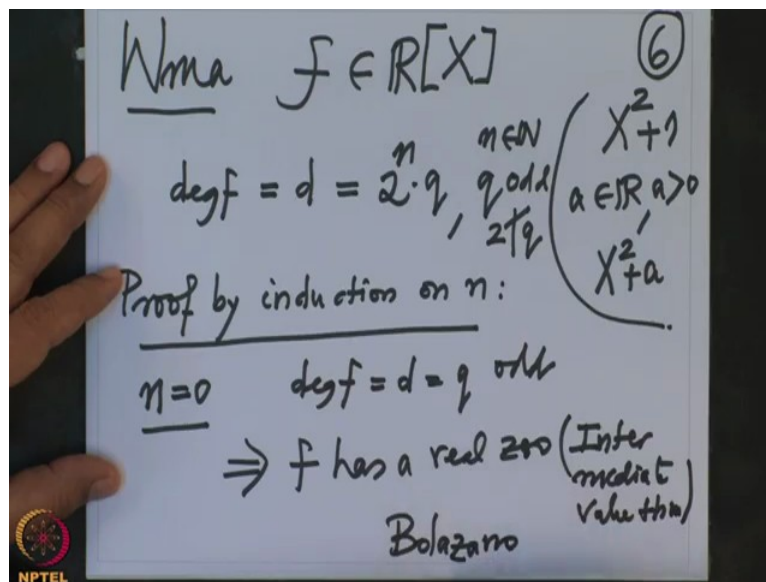 Wma f ∈ ℝ[X]
⑥
deg f = d = 2ⁿ·q, n∈ℕ
q odd
2∤q
X²+1
a ∈ ℝ, a>0
X²+a
Proof by induction on n:
n=0 deg f = d = q odd
⇒ f has a real zero (Inter
mediat
value thm)
Bolazano
NPTEL